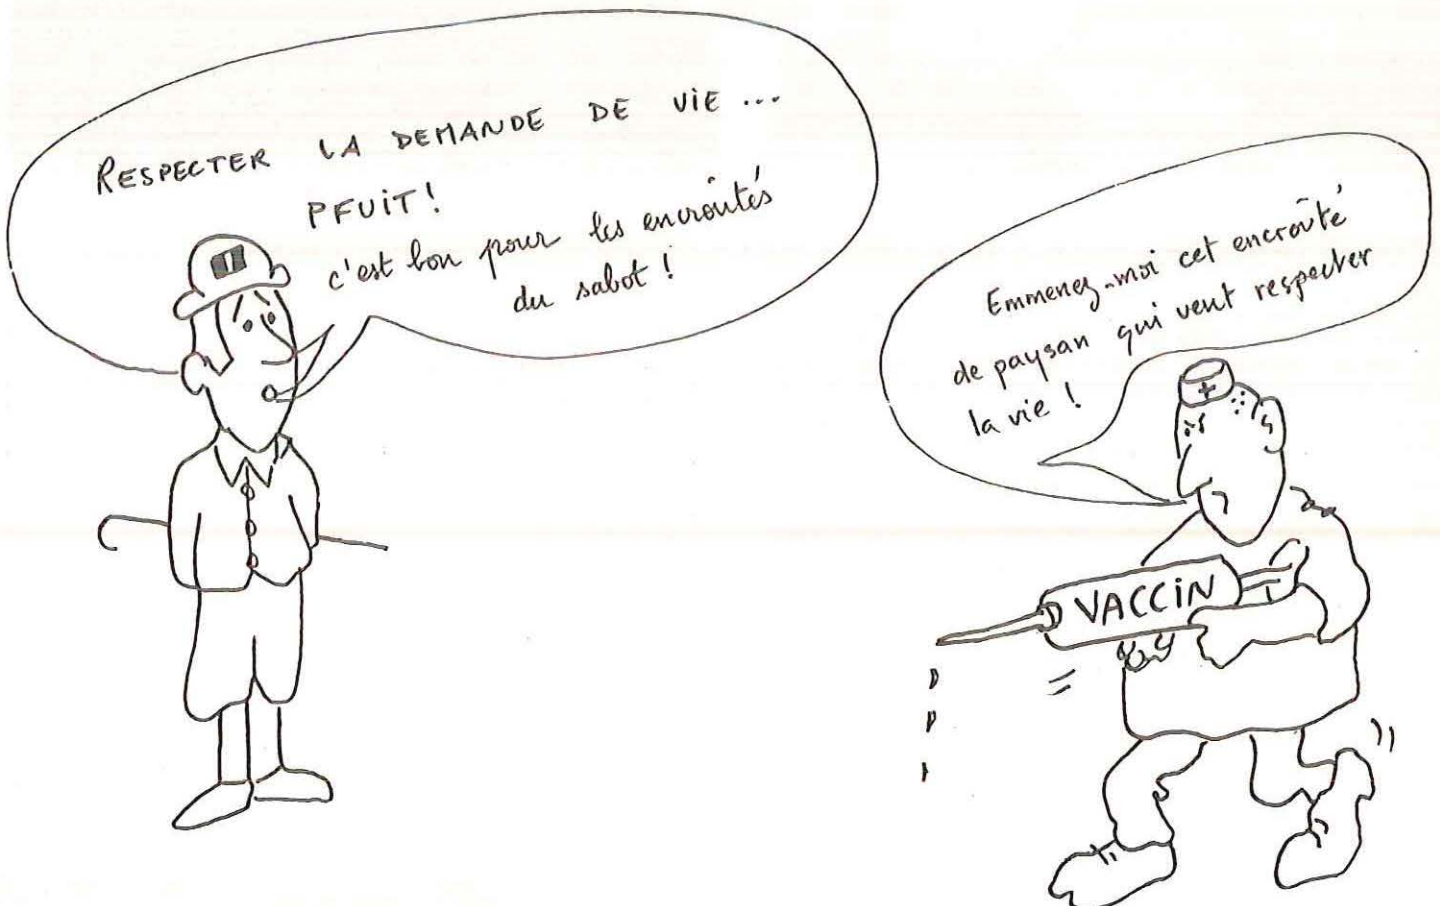 RESPECTER LA DEMANDE DE ViE ...
PFUiT!
c'est bon pour les encroûtés
du sabot !
Emmenez-moi cet encroûté
de paysan qui veut respecter
la vie !
VACCiN